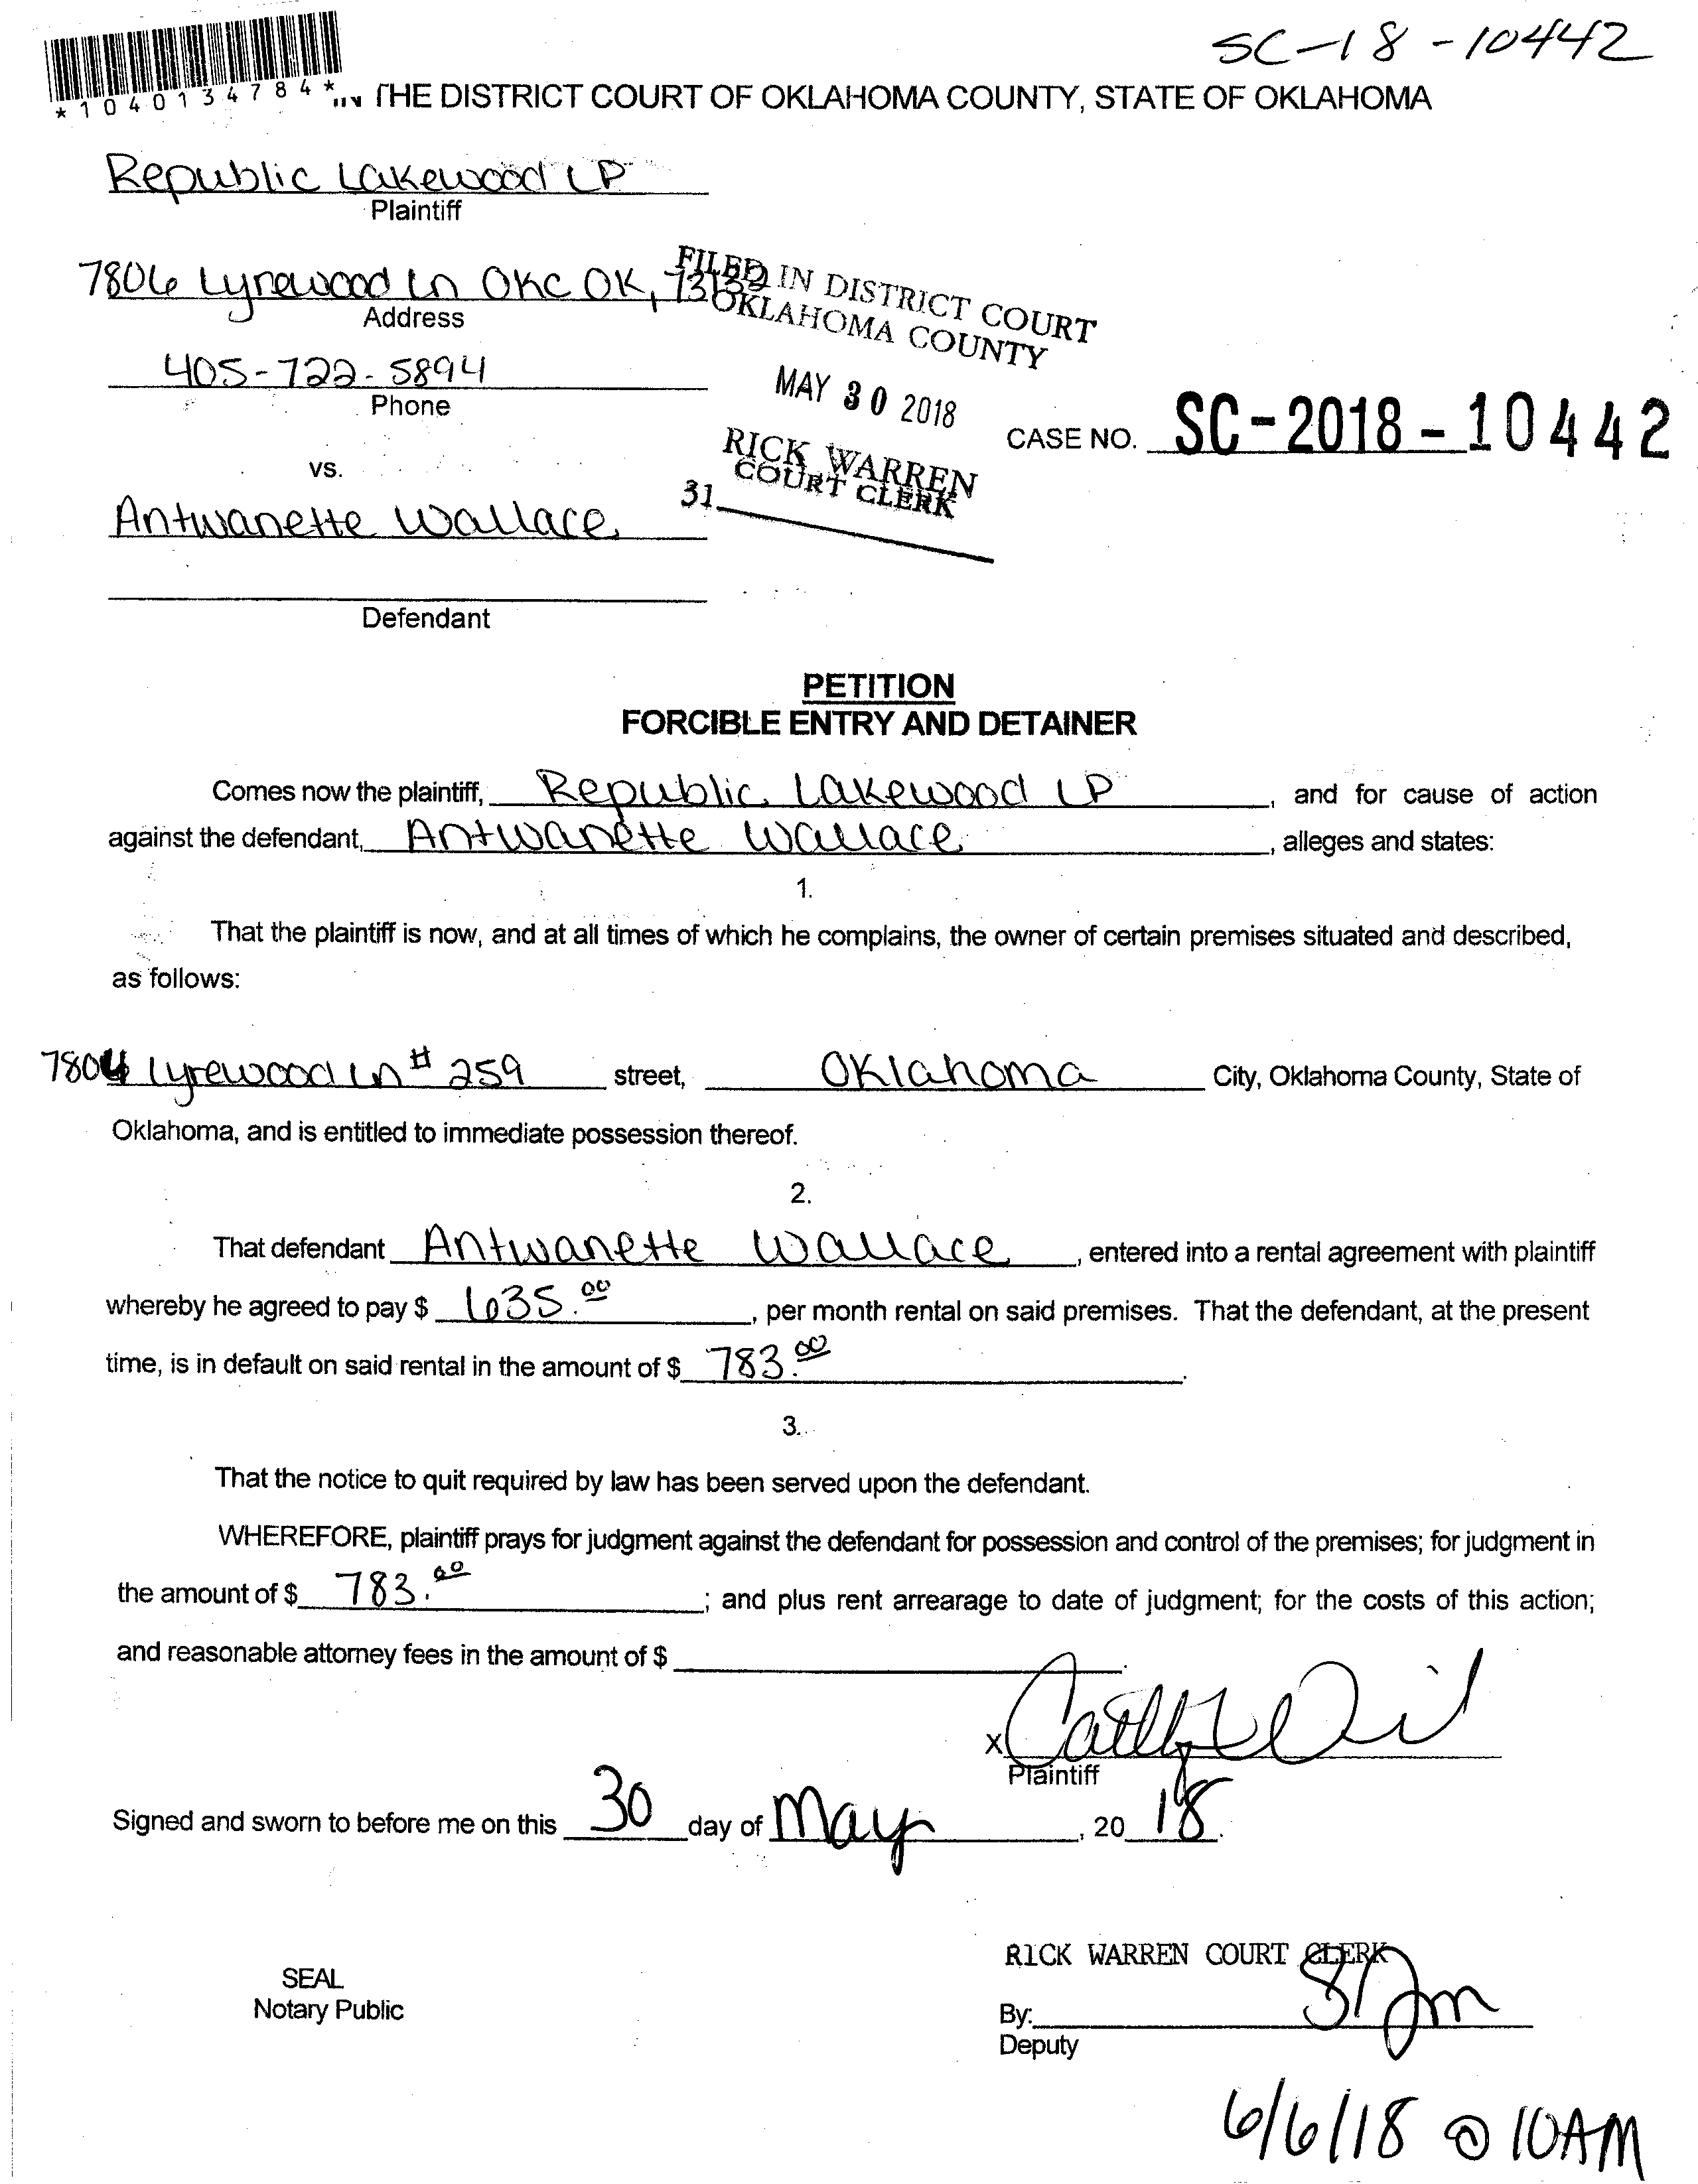 SC-18-10442
*1040134784*
THE DISTRICT COURT OF OKLAHOMA COUNTY, STATE OF OKLAHOMA
Republic Lakewood LP
Plaintiff
7806 Lyrewood Ln OKC OK, 73132
Address
FILED IN DISTRICT COURT
OKLAHOMA COUNTY
405-722-5894
Phone
MAY 30 2018
CASE NO. SC-2018-10442
RICK WARREN
COURT CLERK
31
vs.
Antwanette Wallace
Defendant
PETITION
FORCIBLE ENTRY AND DETAINER
Comes now the plaintiff, Republic Lakewood LP, and for cause of action
against the defendant, Antwanette Wallace, alleges and states:
1.
That the plaintiff is now, and at all times of which he complains, the owner of certain premises situated and described,
as follows:
Lyrewood Ln # 259 street, Oklahoma City, Oklahoma County, State of
Oklahoma, and is entitled to immediate possession thereof.
2.
That defendant Antwanette Wallace, entered into a rental agreement with plaintiff
whereby he agreed to pay $ 635.00, per month rental on said premises. That the defendant, at the present
time, is in default on said rental in the amount of $ 783.00.
3.
That the notice to quit required by law has been served upon the defendant.
WHEREFORE, plaintiff prays for judgment against the defendant for possession and control of the premises; for judgment in
the amount of $ 783.00; and plus rent arrearage to date of judgment; for the costs of this action;
and reasonable attorney fees in the amount of $
X
Plaintiff
Signed and sworn to before me on this 30 day of May, 20 18.
RICK WARREN COURT CLERK
SEAL
Notary Public
By:
Deputy
6/6/18 @ 10AM